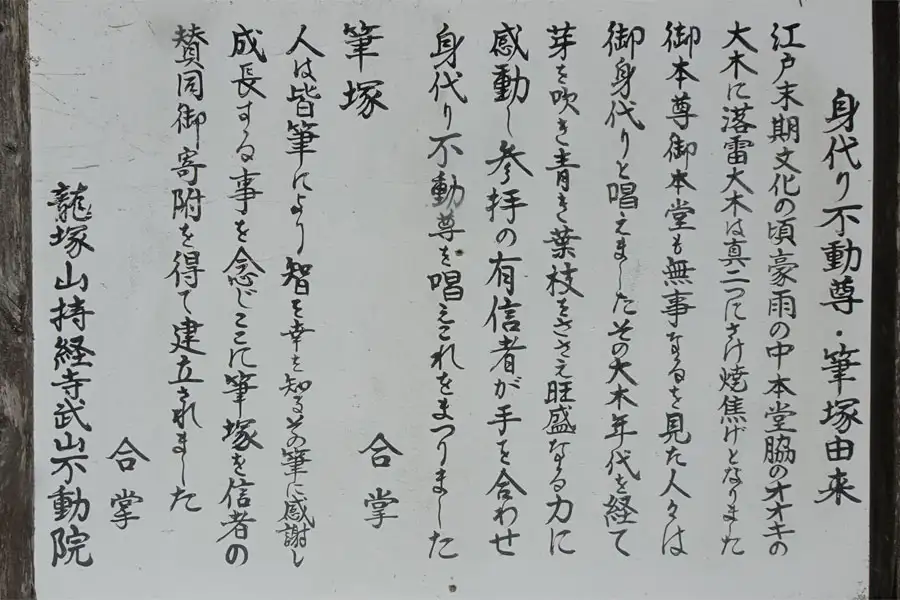 身代り不動尊・筆塚由来
江戸末期文化の頃豪雨の中本堂脇のオオキの
大木に落雷大木は真二つにさけ焼焦げとなりました
御本尊御本堂も無事なるを見た人々は
御身代りと唱えましたその大木年代を経て
芽を吹き青き葉枝をささえ旺盛なる力に
感動し参拝の有信者が手を合わせ
身代り不動尊を唱えこれをまつりました
合掌
筆塚
人は皆筆により智を幸を知るその筆に感謝し
成長する事を念じここに筆塚を信者の
賛同御寄附を得て建立されました
合掌
龍塚山持経寺武山不動院